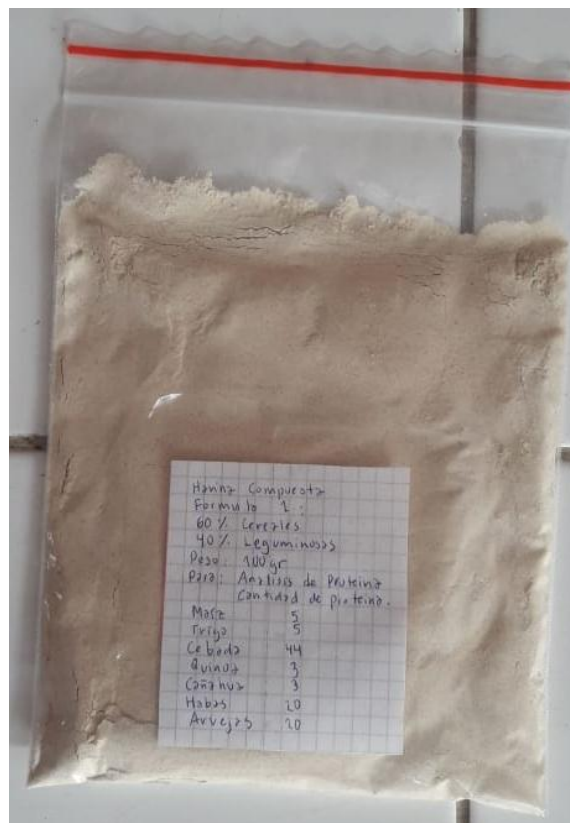 Harina Compuesta
Formula 1 :
60 % Cereales
40 % Leguminosas
Peso: 100 gr
Para: Analisis de Proteina
Cantidad de proteina.
Maíz 5
Trigo 5
Cebada 44
Quinoa 3
Cañahua 3
Habas 20
Arvejas 20